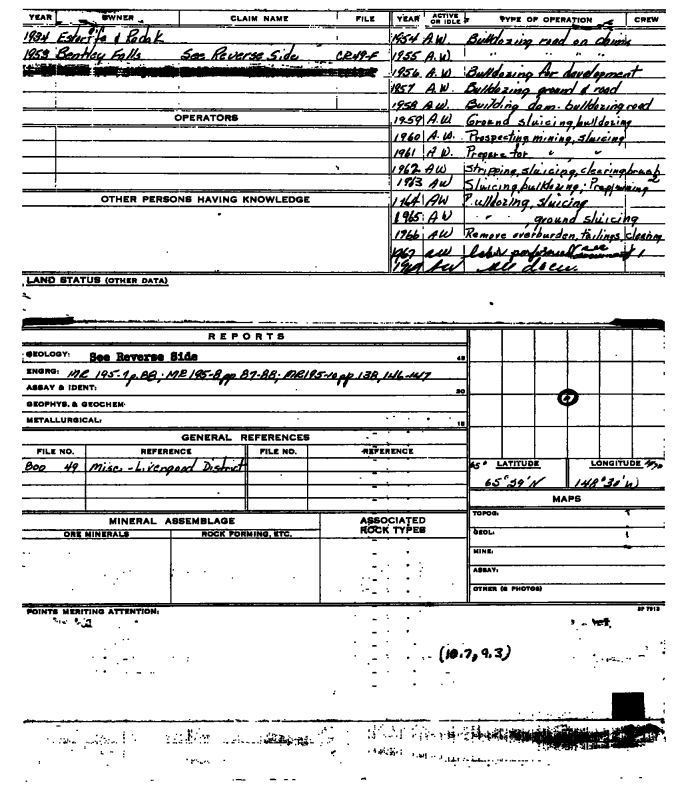 YEAR OWNER CLAIM NAME FILE
1934 & Radak
1953 Bentley Falls See Reverse Side CR49-F
OPERATORS
OTHER PERSONS HAVING KNOWLEDGE
YEAR ACTIVE OR IDLE TYPE OF OPERATION CREW
1954 A.W. Bulldozing road on claims
1955 A.W. " " "
1956 A.W. Bulldozing for development
1957 A.W. Bulldozing ground & road
1958 A.W. Building dam - bulldozing road
1959 A.W. Ground sluicing, bulldozing
1960 A.W. Prospecting mining, sluicing
1961 A.W. Prepare for " "
1962 AW Stripping, sluicing, clearing brush
1963 AW Sluicing, bulldozing,
1964 AW Bulldozing, sluicing
1965 AW " , ground sluicing
1966 AW Remove overburden, tailings, clearing
1967 AW labor performed see
AW see docu.
LAND STATUS (OTHER DATA)
REPORTS
GEOLOGY: See Reverse Side
ENGRG: MR 195-7 p.88; MR 195-8 pp 87-88; MR195-10 pp 138, 146-147
ASSAY & IDENT:
GEOPHYS. & GEOCHEM:
METALLURGICAL:
GENERAL REFERENCES
FILE NO. REFERENCE FILE NO. REFERENCE
Boo 49 Misc. - Livengood District
65° LATITUDE LONGITUDE
65°29'N 148°30'W
MAPS
TOPOG:
GEOL:
MINE:
ASSAY:
OTHER (& PHOTOS)
MINERAL ASSEMBLAGE ASSOCIATED ROCK TYPES
ORE MINERALS ROCK FORMING, ETC.
POINTS MERITING ATTENTION:
(10.7, 9.3)